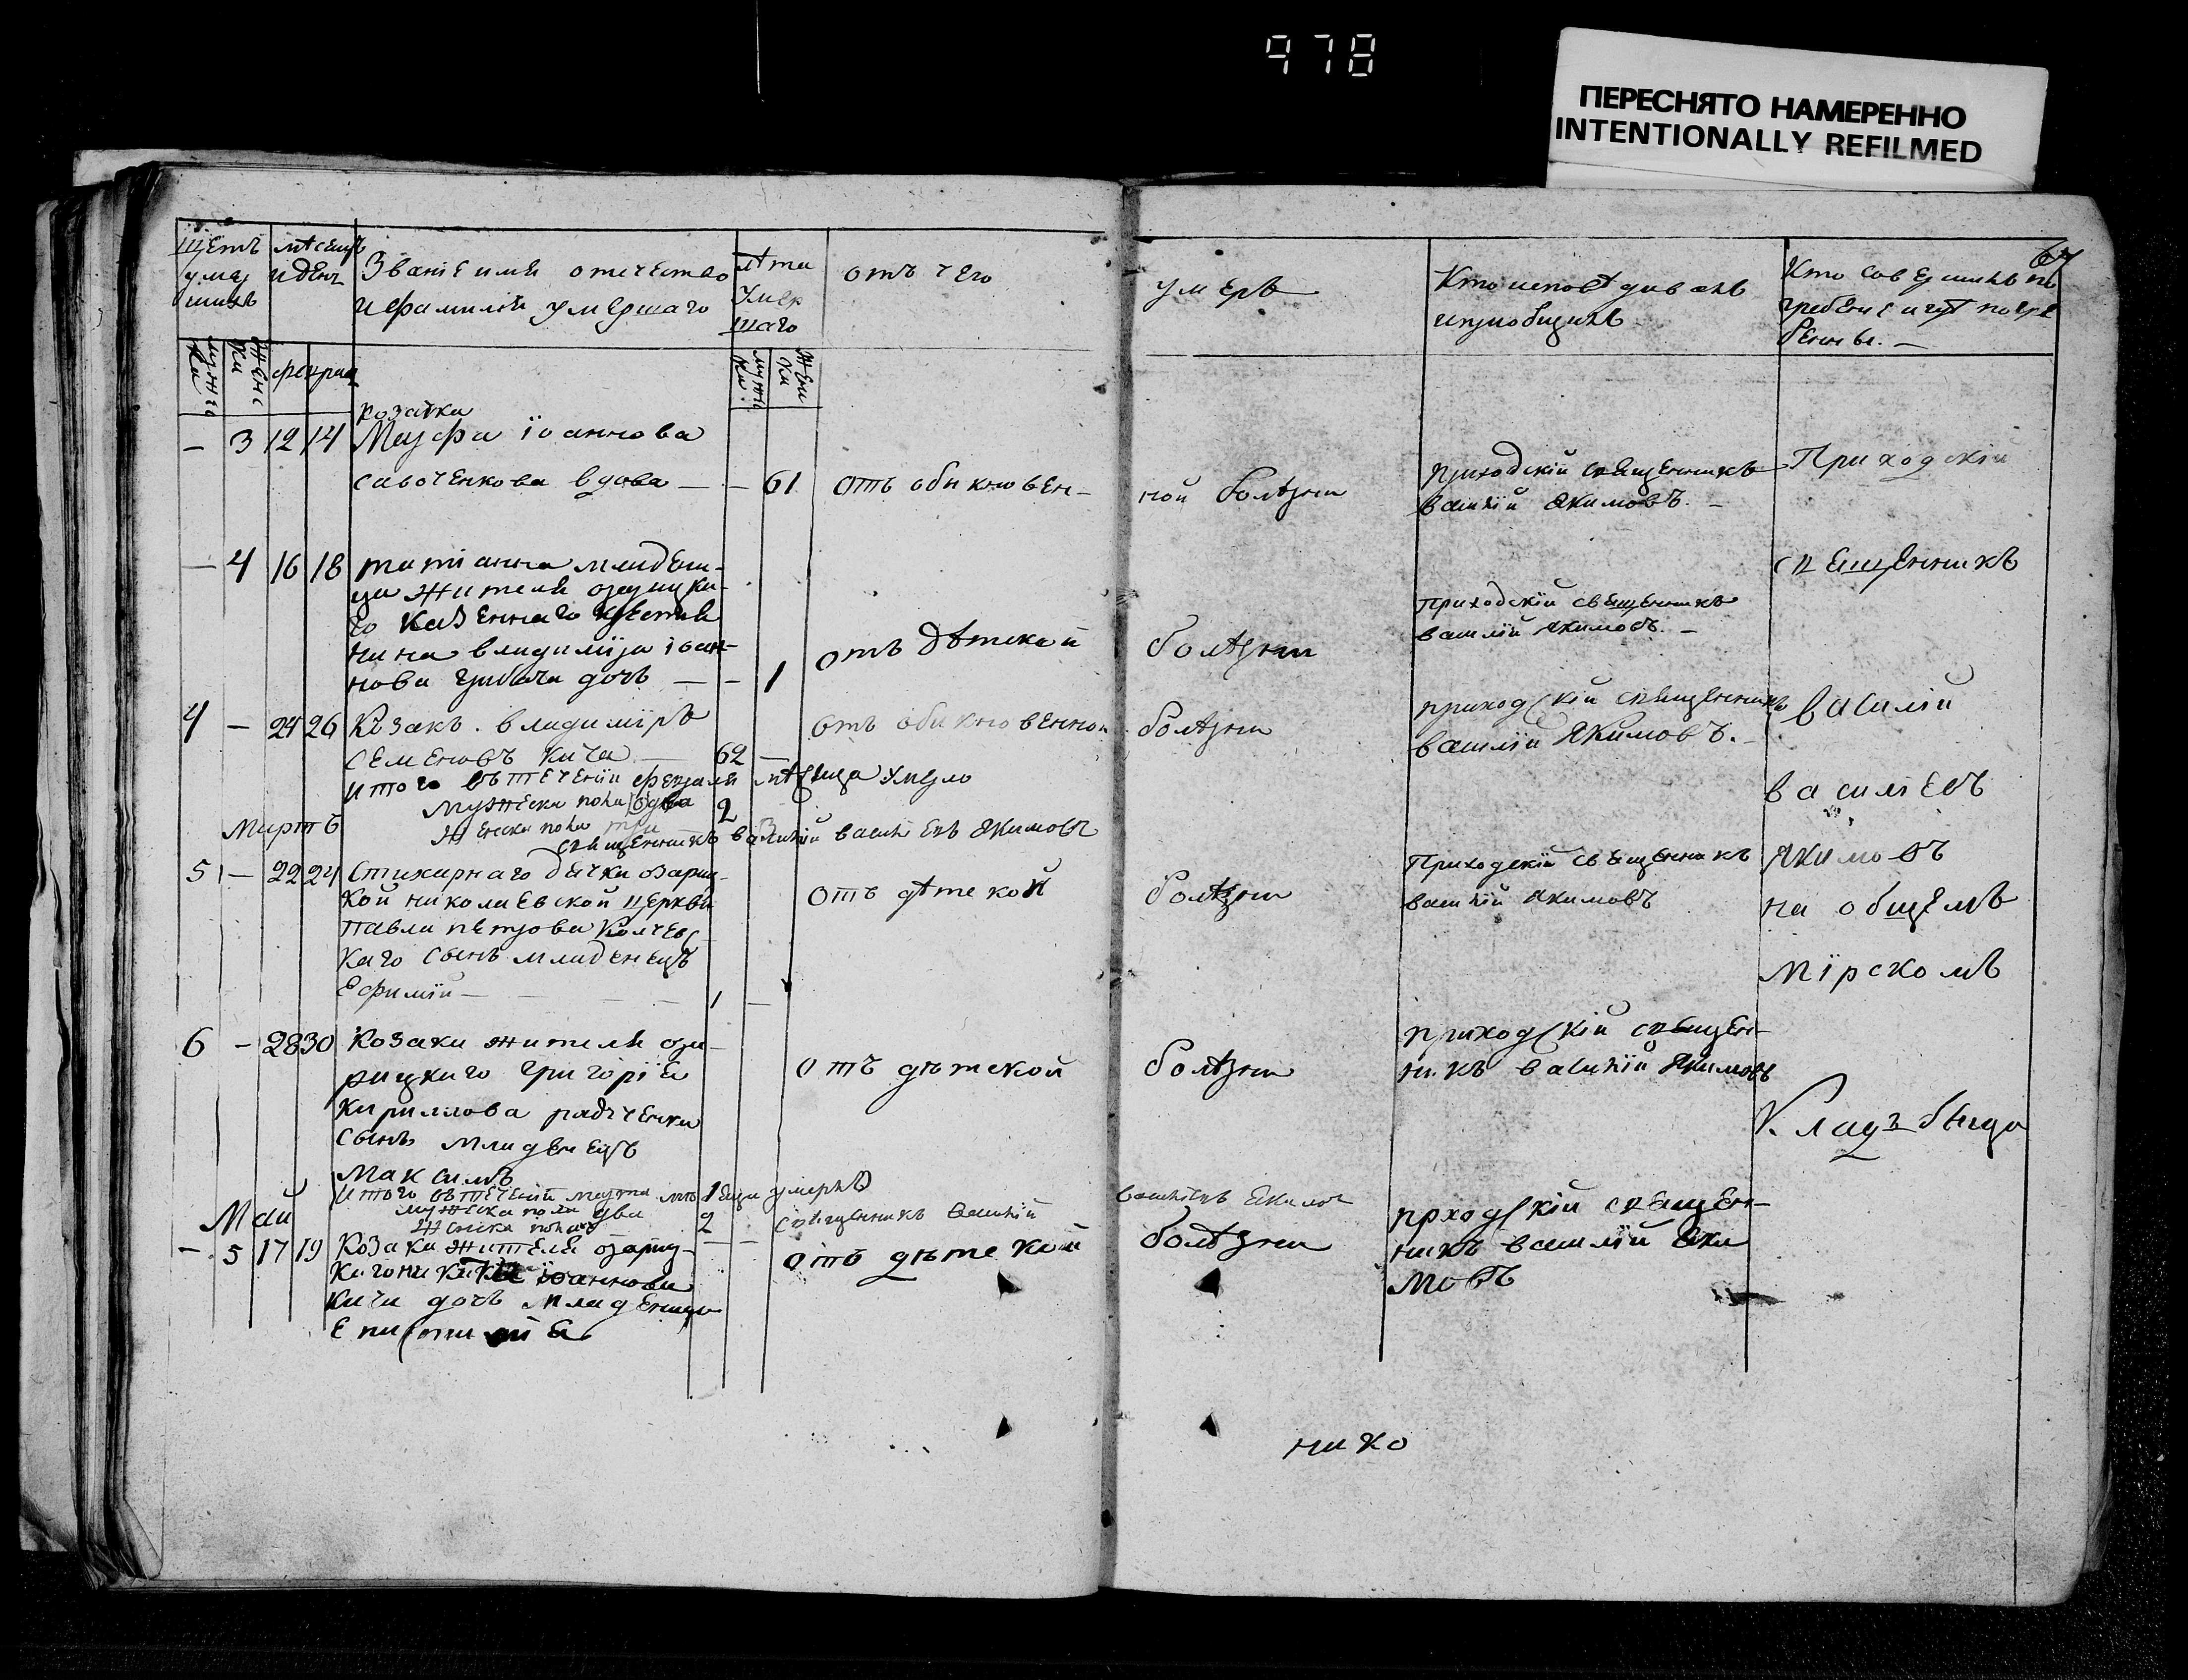 978
ПЕРЕСНЯТО НАМЕРЕННО
INTENTIONALLY REFILMED
67
щетъ умер шихъ
мѣсецъ и день
Званіе имя отечество
и фамилія умершаго
лѣта
Умер
шаго
отъ чего
умеръ
Кто исповѣдывалъ
и пріобщилъ
Кто совершилъ по
гребеніе и гдѣ погре
бенны. —
мужска
женс ка
мужеск
женс ка
козачка
— 3 12 14 Марфа іоаннова
савоченкова вдова — — 61 отъ обыкновен-
ной болѣзни
приходскій священникъ
василій Якимовъ. —
Приходскій
— 4 16 18 татіанна младени-
ца жителя озерицка-
го казеннаго крестья
нина владиміра іоан-
нова грибача дочь — — 1 отъ дѣтской
болѣзни
приходскій священникъ
василій Якимовъ. —
священникъ
4 — 24 26 Козакъ владиміръ
Семеновъ Кича — 62 — отъ обыкновенной
болѣзни
приходскій священникъ
василій Якимовъ. —
василій
итого въ теченіи февраля мѣсяца умерло
мужеска пола два 2
женска пола три 3
священникъ василій васильевъ Якимовъ
васильевъ
Мартъ
5 — 22 24 Стихарнаго дячка озариц-
кой николаевской церкви
павла петрова Колчевс-
каго сынъ младенецъ
Ефимій — 1 — отъ дѣтской
болѣзни
Приходскій священникъ
василій Якимовъ
Якимовъ
на общемъ
мірскомъ
6 — 28 30 Козака жителя оза-
рицкаго григорія
кириллова радченка
сынъ младенецъ
Максимъ 1 отъ дѣтской
болѣзни
приходскій священ-
никъ василій Якимовъ
Кладъбищѣ
итого въ теченіи марта мѣсеца умерлѣ
мужеска пола два 2
женска пола
священникъ василій
васильевъ Якимов
Май
— 5 17 19 Козака жителя озариц-
каго іоаннова
кичи дочь младеница
Епистимія
отъ дѣтской
болѣзни
прходскій священ-
никъ василій Яки
мовъ
нико